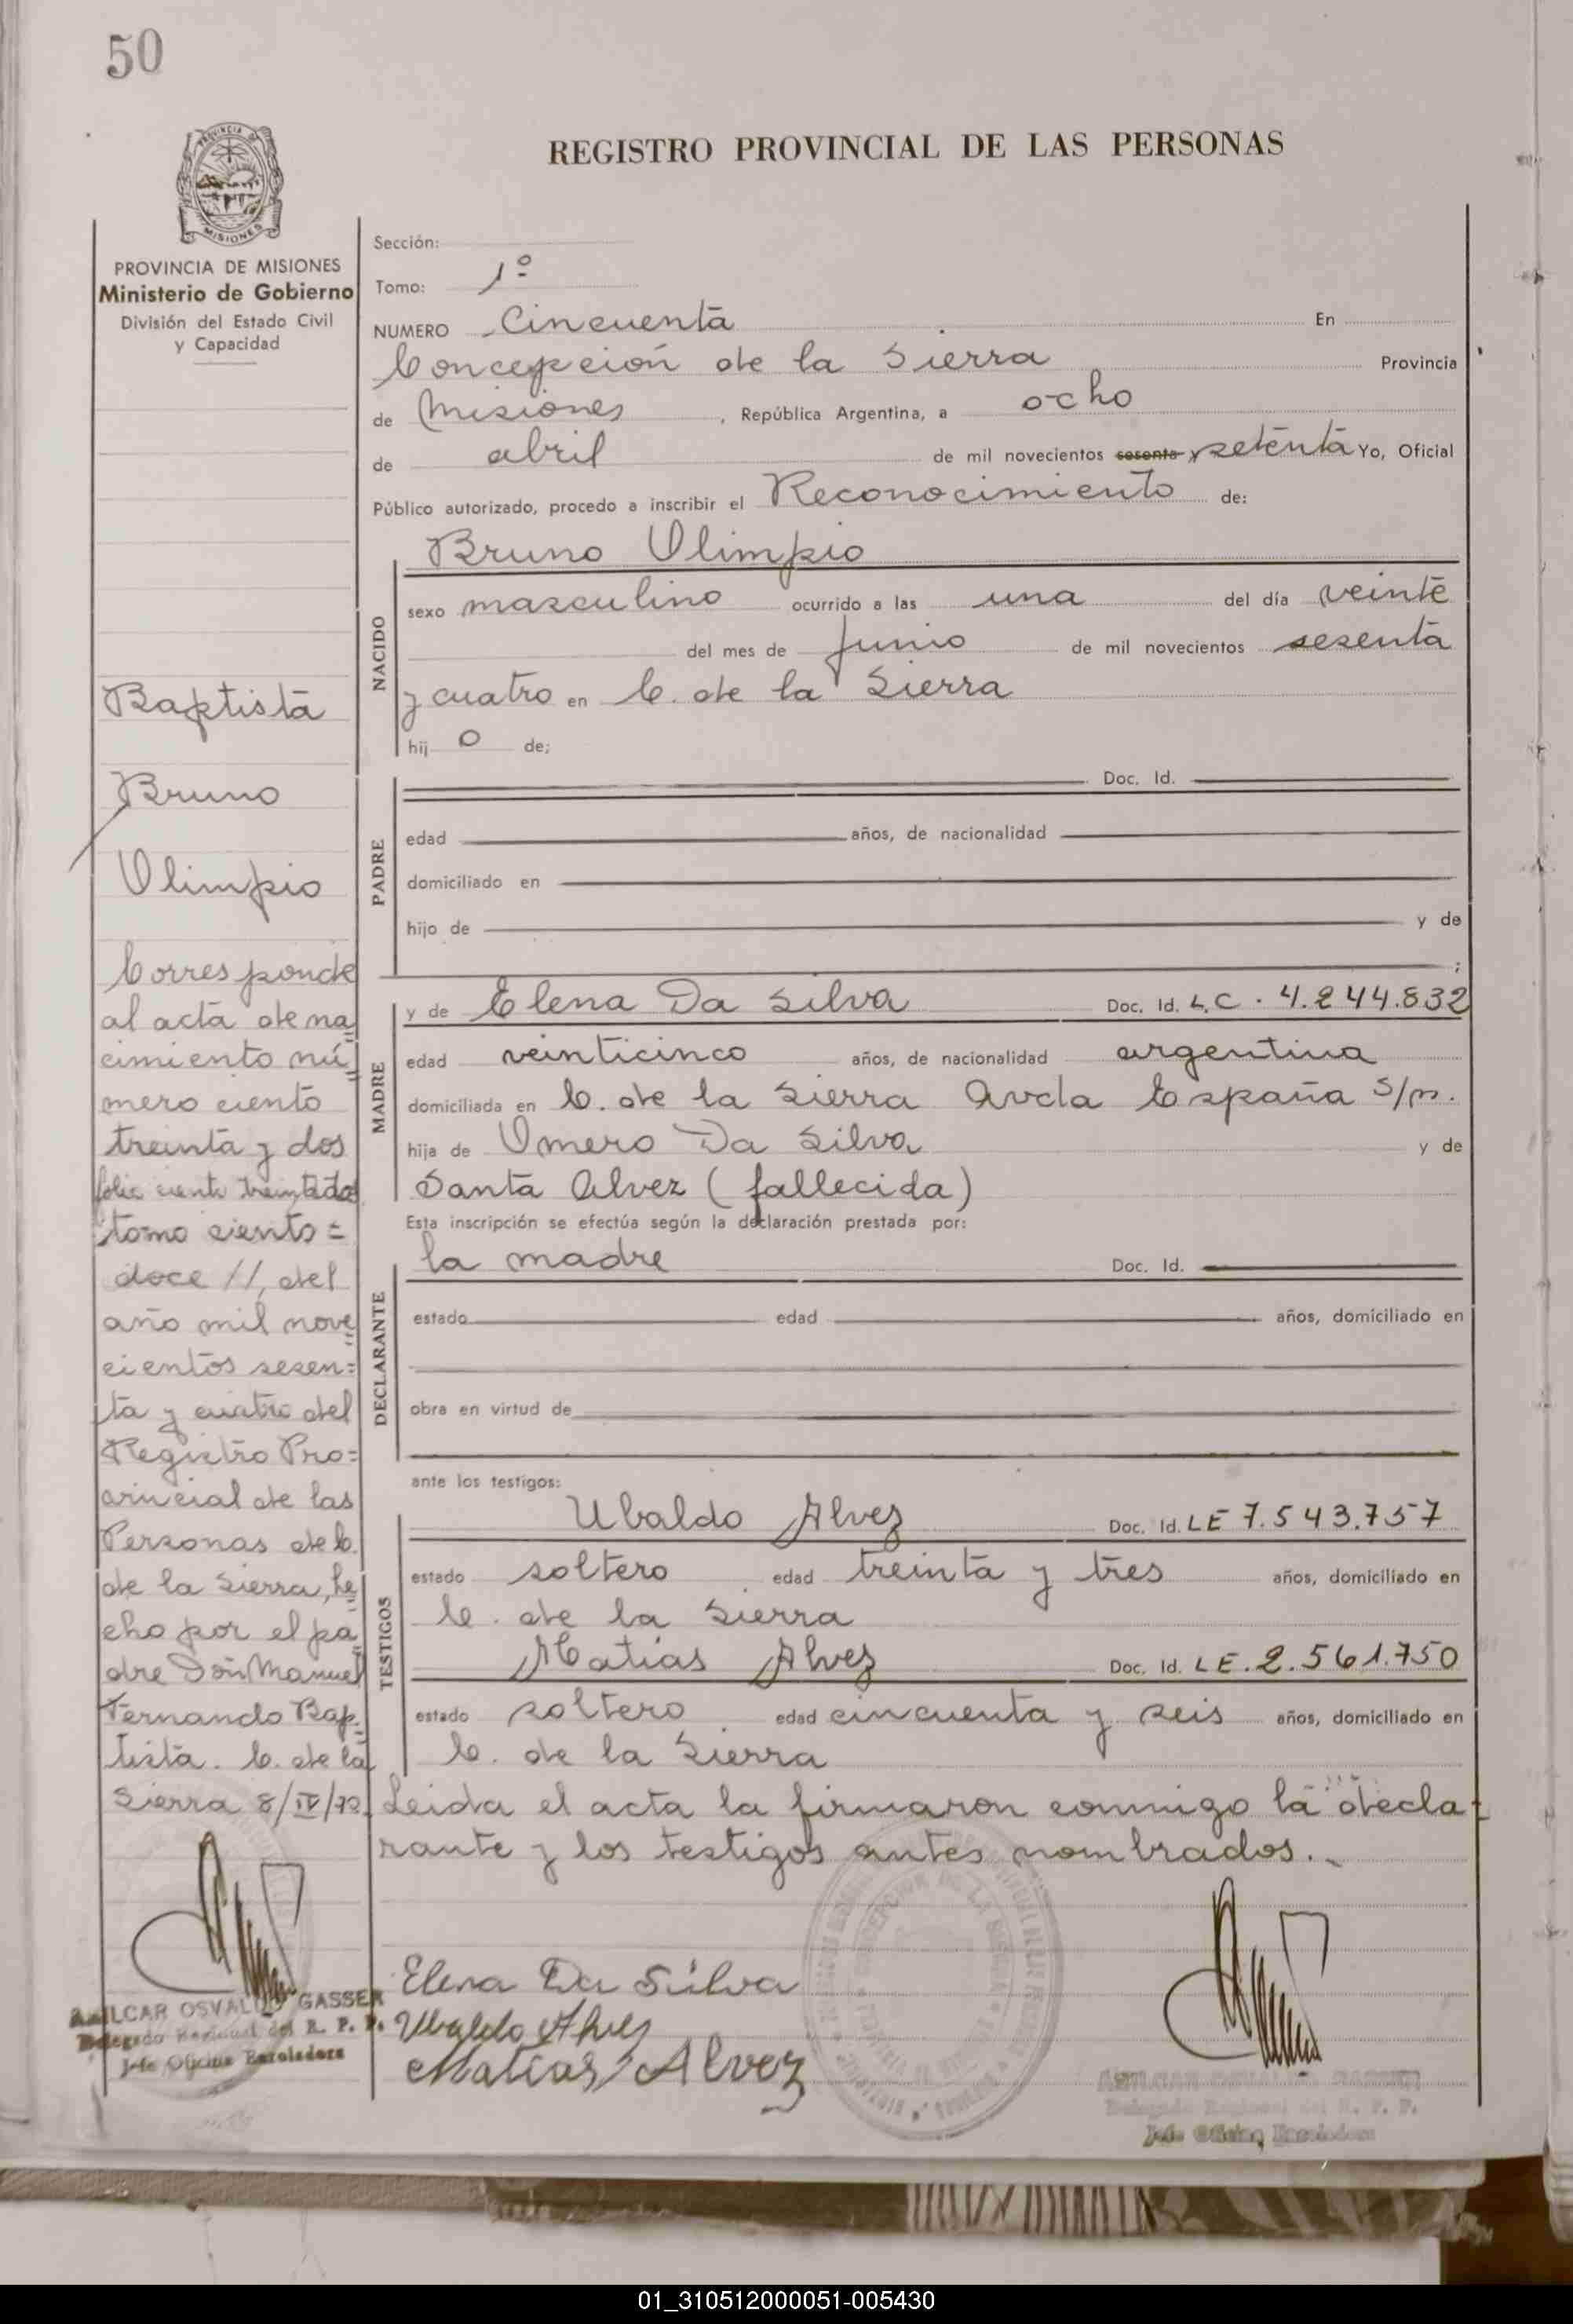 50
REGISTRO PROVINCIAL DE LAS PERSONAS
PROVINCIA DE
MISIONES
PROVINCIA DE MISIONES
Ministerio de Gobierno
División del Estado Civil
y Capacidad
Baptista
Bruno
Olimpio
Corresponde
al acta de na
cimiento nú
mero ciento
treinta y dos
folio ciento treinta dos
tomo ciento =
doce //, del
año mil nove
cientos sesen=
ta y cuatro del
Registro Pro=
vincial de las
Personas de C.
de la Sierra, he
cho por el pa
dre Don Manuel
Fernando Bap
tista. C. de la
Sierra 8/IV/70.
AMILCAR OSVALDO GASSER
Delegado Regional del R. P. P.
Jefe Oficina Enroladora
Sección:
Tomo: 1º
NUMERO Cincuenta En
Concepción de la Sierra Provincia
de Misiones, República Argentina, a ocho
de abril de mil novecientos sesenta y setenta Yo, Oficial
Público autorizado, procedo a inscribir el Reconocimiento de:
NACIDO
Bruno Olimpio
sexo masculino ocurrido a las una del día veinte
del mes de Junio de mil novecientos sesenta
y cuatro en C. de la Sierra
hij o de;
PADRE
Doc. Id.
edad años, de nacionalidad
domiciliado en
hijo de y de
;
MADRE
y de Elena Da Silva Doc. Id. L.C. 4.244.832
edad veinticinco años, de nacionalidad argentina
domiciliada en C. de la Sierra Avda España S/n.
hija de Omero Da Silva y de
Santa Alvez (fallecida)
Esta inscripción se efectúa según la declaración prestada por:
DECLARANTE
la madre Doc. Id.
estado edad años, domiciliado en
obra en virtud de
ante los testigos:
TESTIGOS
Ubaldo Alvez Doc. Id. LE 7.543.757
estado soltero edad treinta y tres años, domiciliado en
C. de la Sierra
Matias Alvez Doc. Id. LE. 2.561.750
estado soltero edad cincuenta y seis años, domiciliado en
C. de la Sierra
Leida el acta la firmaron conmigo la decla-
rante y los testigos antes nombrados.
Elena Da Silva
Ubaldo Alvez
Matias Alvez
AMILCAR OSVALDO GASSER
Delegado Regional del R. P. P.
Jefe Oficina Enroladora
01_310512000051-005430